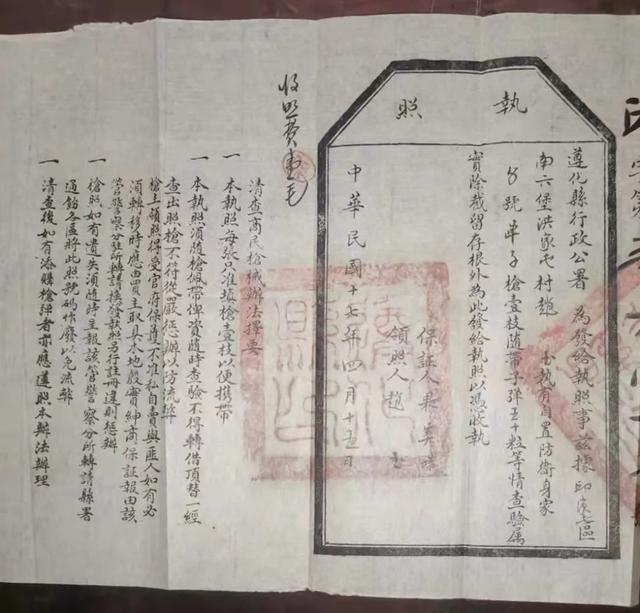 執照
遵化縣行政公署 為發給執照事茲據
南六堡洪家屯村趙 玉執有自置防衛身家
號 子槍壹枝隨帶子彈五十粒等情查驗屬
實除截留存根外為此發給執照以憑收執
保証人
領照人趙 玉
中華民國十七年四月十五日
收照費壹毛
清查商民槍械辦法擇要
一 本執照每張只准填槍壹枝以便携帶
一 本執照須隨槍佩帶俾資隨時查驗不得轉借頂替一經
查出照槍不符從嚴懲辦以防流弊
槍主領照得受官府保護不准私自賣與匪人如有必
須轉移時應由買主取具本地殷實紳商保証報由該
管警察分所轉請換發執照另行註冊違則懲辦
一 槍照如有遺失須隨時呈報該管警察分所轉請縣署
通飭各區將此照號碼作廢以免流弊
一 清查後如有添購槍彈者亦應遵照本辦法辦理